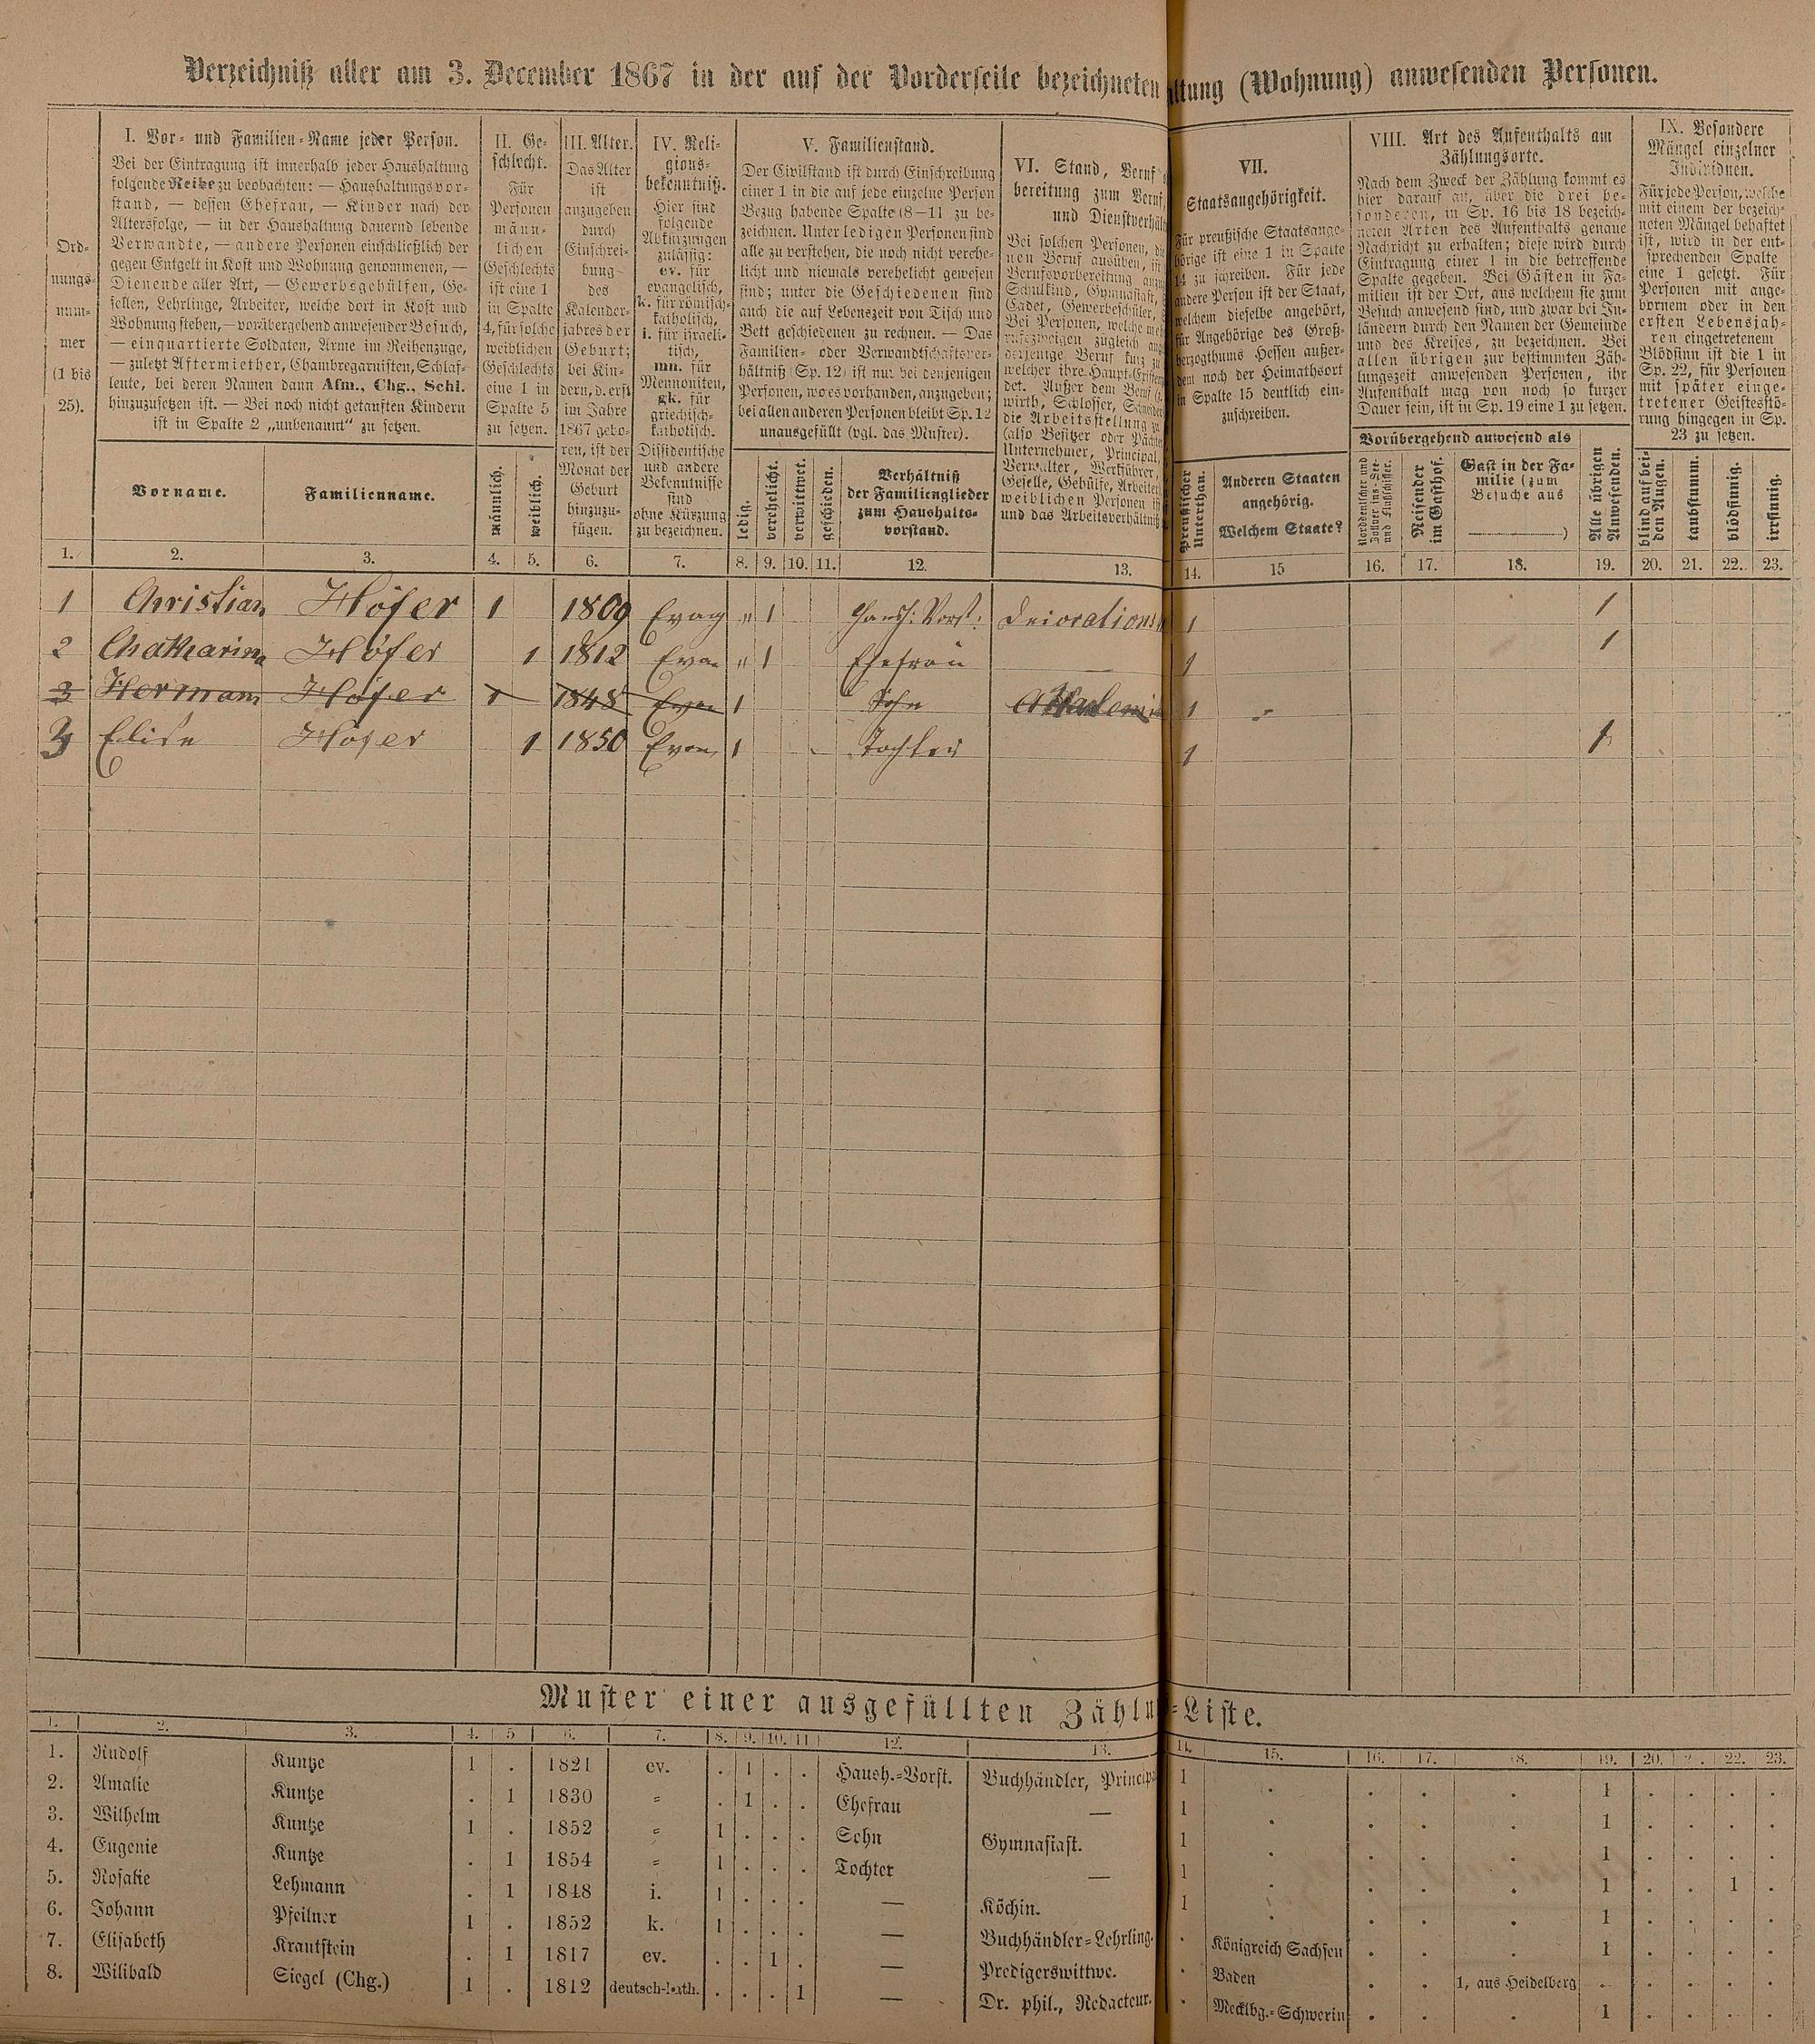 Verzeichniß aller am 3. December 1867 in der auf der Vorderseite bezeichneten ltung (Wohnung) anwesenden Personen.
Ord-
nungs-
num-
mer
(1 bis
25).
I. Vor- und Familien-Name jeder Person.
Bei der Eintragung ist innerhalb jeder Haushaltung
folgende Reihe zu beobachten: — Haushaltungsvor-
stand, — dessen Ehefrau, — Kinder nach der
Altersfolge, — in der Haushaltung dauernd lebende
Verwandte, — andere Personen einschließlich der
gegen Entgelt in Kost und Wohnung genommenen, —
Dienende aller Art, — Gewerbegehülfen, Ge-
sellen, Lehrlinge, Arbeiter, welche dort in Kost und
Wohnung stehen, — vorübergehend anwesender Besuch,
— einquartierte Soldaten, Arme im Reihenzuge,
— zuletzt Aftermiether, Chambregarnisten, Schlaf-
leute, bei deren Namen dann Afm., Chg., Schl.
hinzuzusetzen ist. — Bei noch nicht getauften Kindern
ist in Spalte 2 „unbenannt" zu setzen.
Vorname.
Familienname.
II. Ge-
schlecht.
Für
Personen
männ-
lichen
Geschlechts
ist eine 1
in Spalte
4, für solche
weiblichen
Geschlechts
eine 1 in
Spalte 5
zu setzen.
männlich.
weiblich.
III. Alter.
Das Alter
ist
anzugeben
durch
Einschrei-
bung
des
Kalender-
jahres der
Geburt;
bei Kin-
dern, d. erst
im Jahre
1867 gebo-
ren, ist der
Monat der
Geburt
hinzuzu-
fügen.
IV. Reli-
gions-
bekenntniß.
Hier sind
folgende
Abkürzungen
zulässig:
ev. für
evangelisch,
k. für römisch-
katholisch,
i. für israeli-
tisch,
mn. für
Mennoniten,
gk. für
griechisch-
katholisch.
Dissidentische
und andere
Bekenntnisse
sind
ohne Kürzung
zu bezeichnen.
V. Familienstand.
Der Civilstand ist durch Einschreibung
einer 1 in die auf jede einzelne Person
Bezug habende Spalte (8—11 zu be-
zeichnen. Unter ledigen Personen sind
alle zu verstehen, die noch nicht verehe-
licht und niemals verehelicht gewesen
sind; unter die Geschiedenen sind
auch die auf Lebenszeit von Tisch und
Bett geschiedenen zu rechnen. — Das
Familien- oder Verwandtschaftsver-
hältniß (Sp. 12) ist nur bei denjenigen
Personen, wo es vorhanden, anzugeben;
bei allen anderen Personen bleibt Sp. 12
unausgefüllt (vgl. das Muster).
ledig.
verehelicht.
verwittwet.
geschieden.
Verhältniß
der Familienglieder
zum Haushalts-
vorstand.
VI. Stand, Beruf
bereitung zum Beruf,
und Dienstverhält
Bei solchen Personen, di
nen Beruf ausüben, ist
Berufsvorbereitung
Schulkind, Gymnasiast,
Cadet, Gewerbeschüler,
Bei Personen, welche
zugleich
derjenige Beruf kurz zu
welcher ihre Haupt-Existen
det. Außer dem Beruf
wirth, Schlosser, Schneider
die Arbeitsstellung zu
(also Besitzer oder Pächte
Unternehmer, Principal,
Verwalter, Werkführer,
Geselle, Gehülfe, Arbeiter
weiblichen Personen ist
und das Arbeitsverhältniß
VII.
Staatsangehörigkeit.
Für preußische Staatsange-
hörige ist eine 1 in Spalte
14 zu schreiben. Für jede
andere Person ist der Staat,
welchem dieselbe angehört,
für Angehörige des Groß-
herzogthums Hessen außer-
dem noch der Heimathsort
in Spalte 15 deutlich ein-
zuschreiben.
Preußischer
Unterthan.
Anderen Staaten
angehörig.
Welchem Staate?
VIII. Art des Aufenthalts am
Zählungsorte.
Nach dem Zweck der Zählung kommt es
hier darauf an, über die drei be-
sonderen, in Sp. 16 bis 18 bezeich-
neten Arten des Aufenthalts genaue
Nachricht zu erhalten; diese wird durch
Eintragung einer 1 in die betreffende
Spalte gegeben. Bei Gästen in Fa-
milien ist der Ort, aus welchem sie zum
Besuch anwesend sind, und zwar bei In-
ländern durch den Namen der Gemeinde
und des Kreises, zu bezeichnen. Bei
allen übrigen zur bestimmten Zäh-
lungszeit anwesenden Personen, ihr
Aufenthalt mag von noch so kurzer
Dauer sein, ist in Sp. 19 eine 1 zu setzen.
Vorübergehend anwesend als
Norddeutscher und
Zollver.ins-See-
und Flußschiffer.
Reisender
im Gasthof.
Gast in der Fa-
milie (zum
Besuche aus
)
Alle übrigen
Anwesenden.
IX. Besondere
Mängel einzelner
Individuen.
Für jede Person, welche
mit einem der bezeich-
neten Mängel behaftet
ist, wird in der ent-
sprechenden Spalte
eine 1 gesetzt. Für
Personen mit ange-
bornem oder in den
ersten Lebensjah-
ren eingetretenem
Blödsinn ist die 1 in
Sp. 22, für Personen
mit später einge-
tretener Geistesstö-
rung hingegen in Sp.
23 zu setzen.
blind auf bei-
den Augen.
taubstumm.
blödsinnig.
irrsinnig.
1. 2. 3. 4. 5. 6. 7. 8. 9. 10. 11. 12. 13. 14. 15 16. 17. 18. 19. 20. 21. 22. 23.
1 Christian Höfer 1 1809 Evag " 1 Haush: Vorst: Deiorations 1 1
2 Chatharina Höfer 1 1812 Evan " 1 Ehefrau — 1 1
3 Hermann Höfer 1 1848 Evan 1 Sohn Akademi 1
3 Elise Höfer 1 1850 Evan 1 Tochter 1 1
Muster einer ausgefüllten Zählu =Liste.
1. 2. 3. 4. 5 6. 7. 8. 9. 10. 11 12. 13. 14. 15. 16. 17. 18. 19. 20. 2 . 22. 23.
1. Rudolf Kuntze 1 . 1821 ev. . 1 . . Haush.=Vorst. Buchhändler, Principa 1 . . . . 1 . . . .
2. Amalie Kuntze . 1 1830 = . 1 . . Ehefrau — 1 . . . . 1 . . . .
3. Wilhelm Kuntze 1 . 1852 = 1 . . . Sohn Gymnasiast. 1 . . . . 1 . . . .
4. Eugenie Kuntze . 1 1854 = 1 . . . Tochter — 1 . . . . 1 . . 1 .
5. Rosalie Lehmann . 1 1848 i. 1 . . . — Köchin. 1 . . . . 1 . . . .
6. Johann Pfeilner 1 . 1852 k. 1 . . . — Buchhändler=Lehrling. . Königreich Sachsen . . . 1 . . . .
7. Elisabeth Krautstein . 1 1817 ev. . . 1 . — Predigerswittwe. . Baden . . 1, aus Heidelberg . . . . .
8. Wilibald Siegel (Chg.) 1 . 1812 deutsch-kath. . . . 1 — Dr. phil., Redacteur. . Mecklbg.=Schwerin . . . 1 . . . .